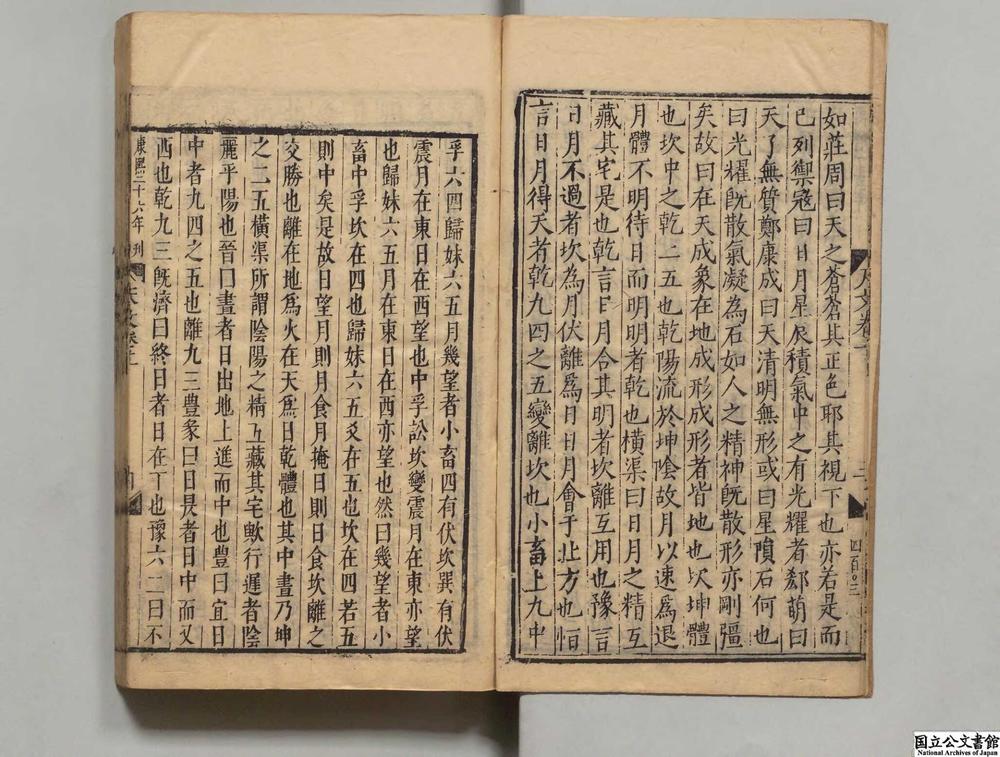 如莊周曰天之蒼蒼其正色耶其視下也亦若是而
已列禦寇曰日月星辰積氣中之有光耀者郄萌曰
天了無質鄭康成曰天清明無形或曰星隕石何也
曰光耀旣散氣凝為石如人之精神旣散形亦剛彊
矣故曰在天成象在地成形成形者皆地也坎坤體
也坎中之乾二五也乾陽流於坤陰故月以速爲退
月體不明待日而明明者乾也橫渠曰日月之精互
藏其宅是也乾言日月合其明者坎離互用也豫言
日月不過者坎為月伏離爲日日月會于北方也恒
言日月得天者乾九四之五變離坎也小畜上九中
孚六四歸妹六五月幾望者小畜四有伏坎巽有伏
震月在東日在西望也中孚訟坎變震月在東亦望
也歸妹六五月在東日在西亦望也然曰幾望者小
畜中孚坎在四也歸妹六五爻在五也坎在四若五
則中矣是故日望月則月食月掩日則日食坎離之
交勝也離在地爲火在天爲日乾體也其中畫乃坤
之二五橫渠所謂陰陽之精互藏其宅歟行遲者陰
麗乎陽也晉曰晝者日出地上進而中也豊曰宜日
中者九四之五也離九三豊彖曰日昃者日中而又
西也乾九三旣濟曰終日者日在下也豫六二曰不
康熙三十六年刊
四百〇三
国立公文書館
National Archives of Japan